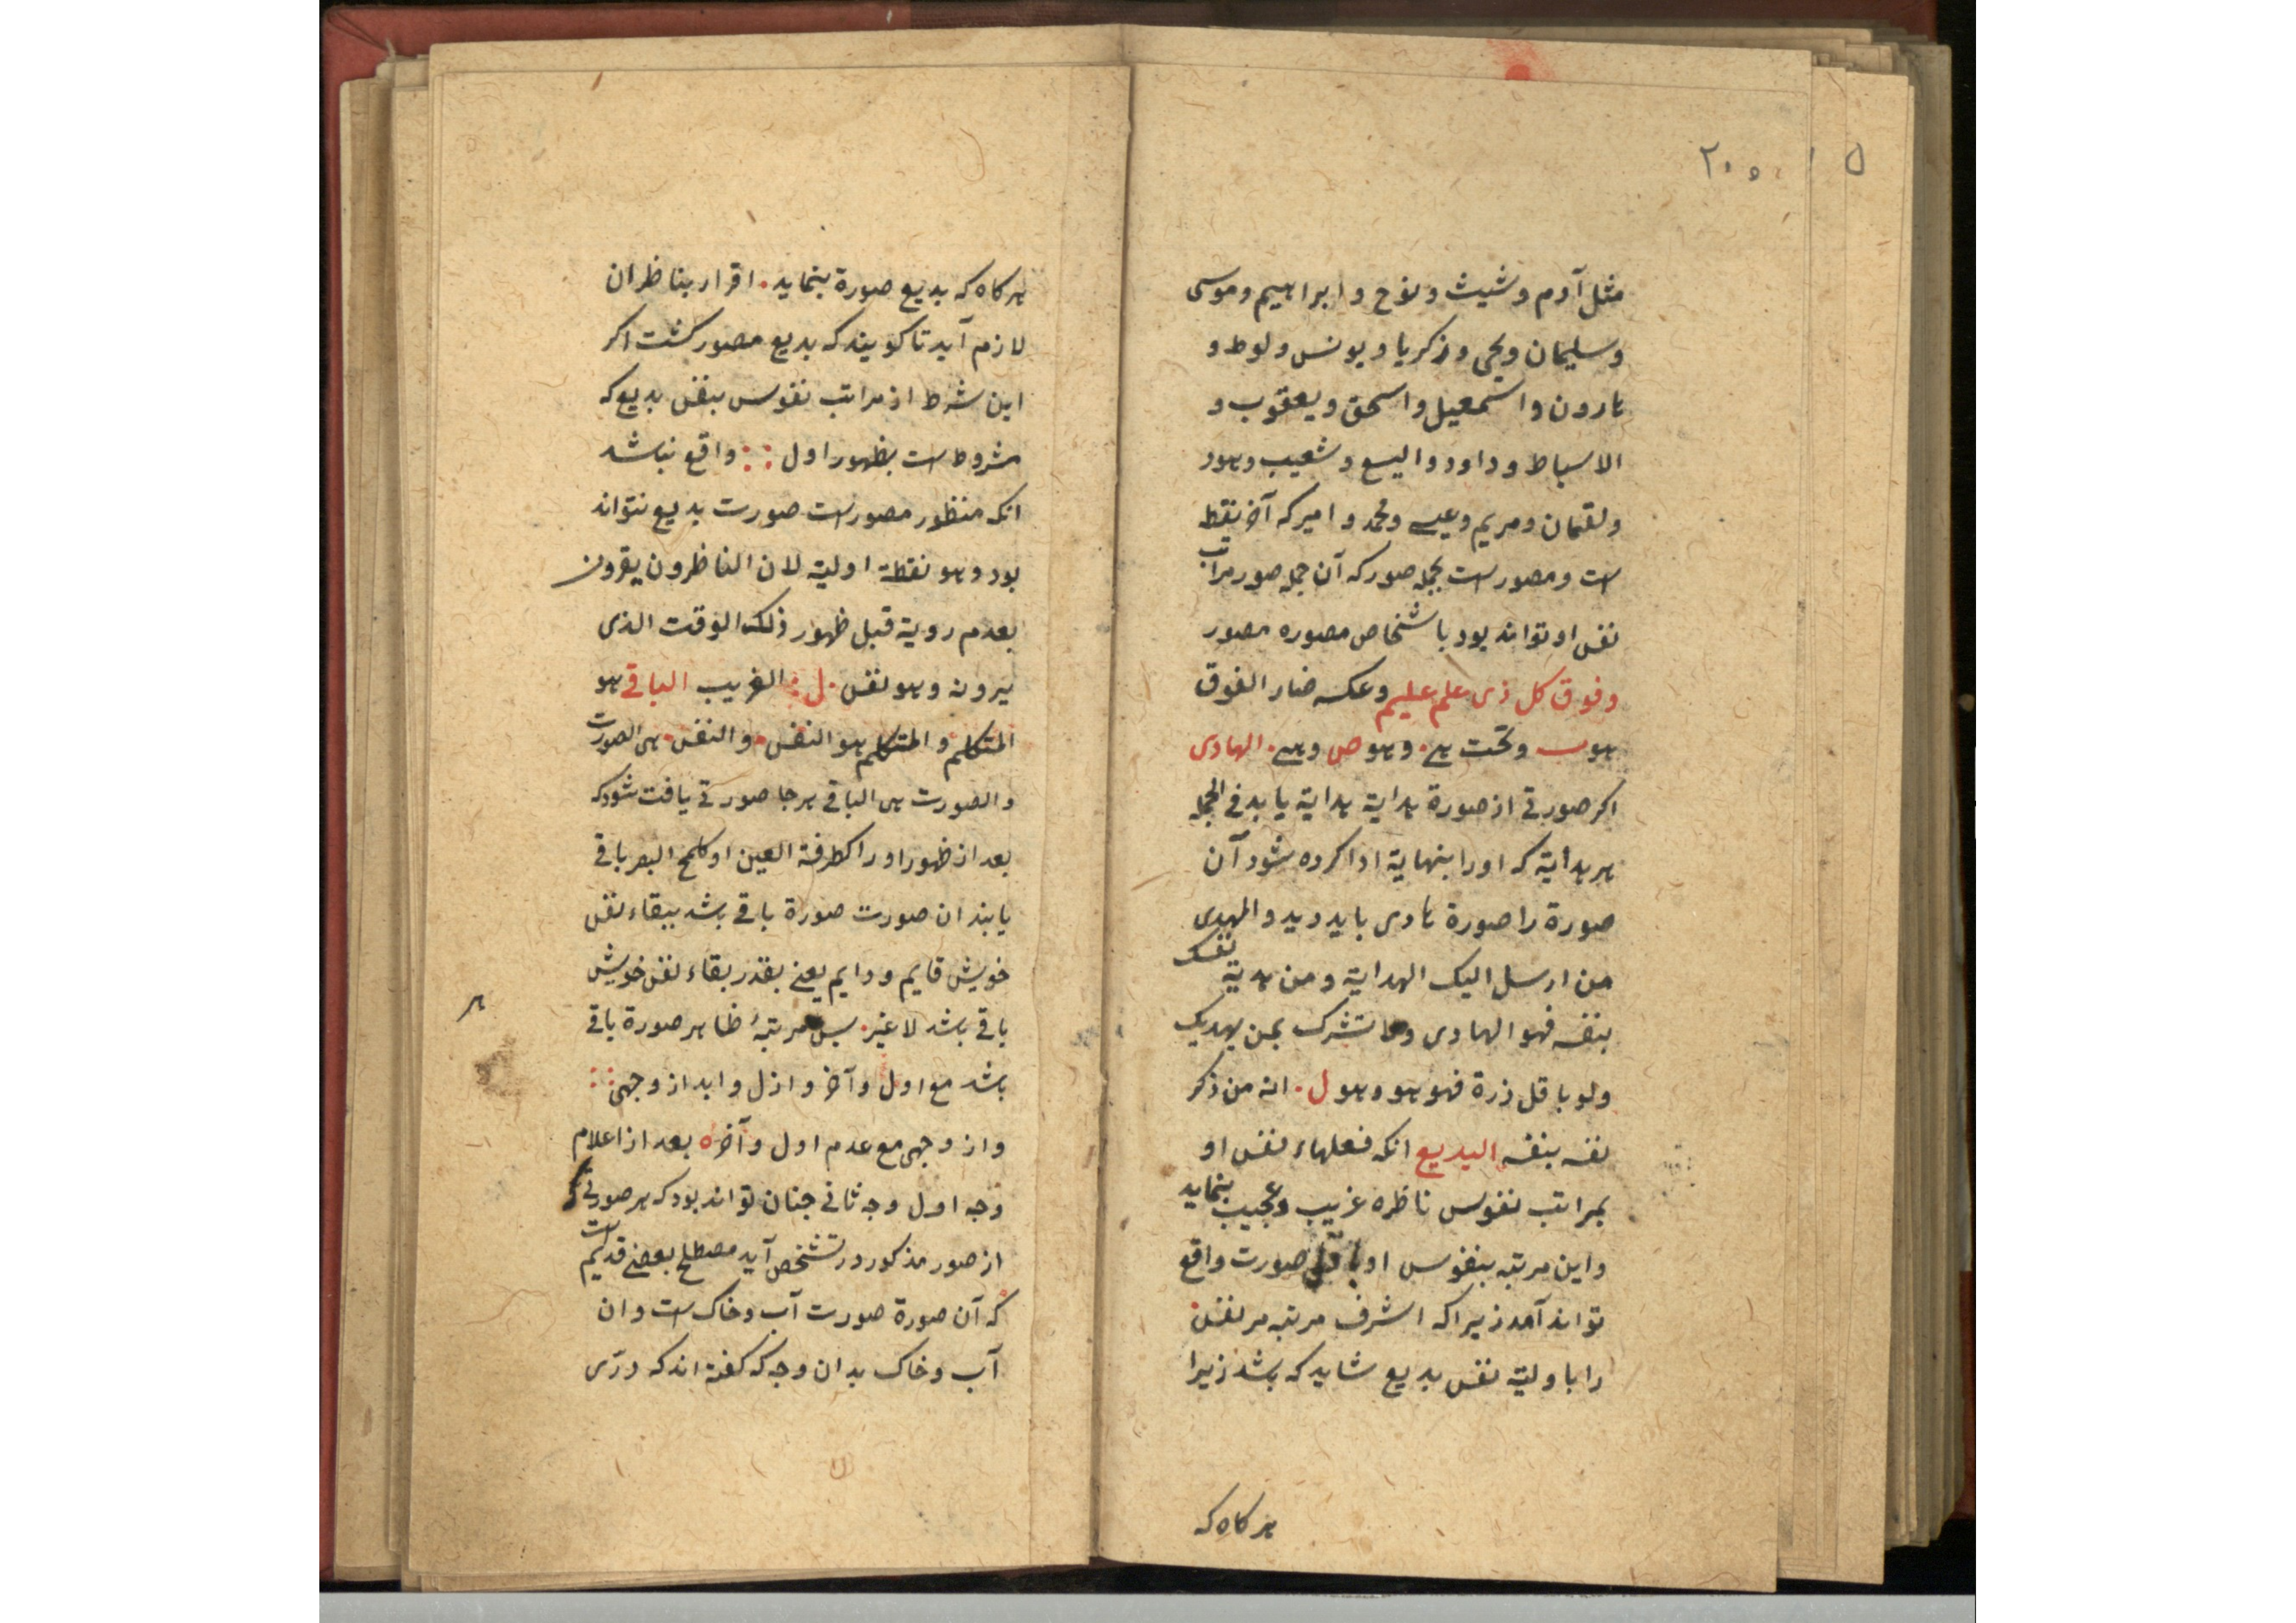 ۲۰۵ ۱ ۵
مثل آدم و شیث و نوح و ابراهیم و موسی
و سلیمان و یحیی و زکریا و یونس و لوط و
هارون و اسمعیل و اسحق و یعقوب و
الاسباط و داود و الیسع و شعیب و هود
و لقمان و مریم و عیسی و محمد و امیر که آخر نقطه
است و مصور است بجمله صور که آن جمله صور مراتب
نفس او تواند بود با شخاص مصوره مصور
و فوق کل ذی علم علیم و عکسه ضار الفوق
هو و تحت هی . و هو ص و هی . الهادی
اکر صورتی از صورة هدایة هدایة یابد فی الجمله
هر هدایة که او را بنهایة ادا کرده شود آن
صورة را صورة هادی باید دید و المهدی
من ارسل الیک الهدایة و من هدیة نفسک
بنفسه فهو الهادی و ما تشرک بمن یهدیک
ولو باقل ذرة فهو هو و هو ل . انه من ذکر
نفسه بنفسه البدیع انکه فعلهاء نفس او
بمراتب نفوس ناظره غریب و عجیب بنماید
و این مرتبه بنفوس او صورت واقع
تواند آمد زیرا که اشرف مرتبه مر نفس
را باولیة نفس بدیع شاید که باشد زیرا
هر کاه که
هر کاه که بدیع صورة بنماید . اقرار بناظران
لازم آید تا کویند که بدیع مصور کشت اکر
این شرط از مراتب نفوس بنفس بدیع که
مشروط است بظهور اول :: واقع نباشد
انکه منظور مصور است صورت بدیع نتواند
بود و هو نقطة اولیة لان الناظرون یقرون
بعدم رویة قبل ظهور ذلک الوقت الذی
یرونه و هو نفس . ل : الغریب الباقی هو
المتکلم و المتکلم هو النفس . و النفس . هی الصورت
و الصورت هی الباقی هر جا صورتی یافت شود که
بعد از ظهور او را کطرفة العین او کلمح البصر باقی
یابند ان صورت صورة باقی باشد ببقاء نفس
خویش قایم و دایم یعنی بقدر بقاء نفس خویش
باقی باشد لا غیر . بس مرتبهٔ ظاهر صورة باقی
باشد مع اول و آخر و ازل و ابد از وجهی ::
و از وجهی مع عدم اول و آخر ه بعد از اعلام
وجه اول وجه ثانی جنان تواند بود که هر صورتی که
از صور مذکور در تشخص آید مصطلح بعضی قدیم است
که آن صورة صورت آب و خاک است و ان
آب و خاک بدان وجه که کفته اند که درّی